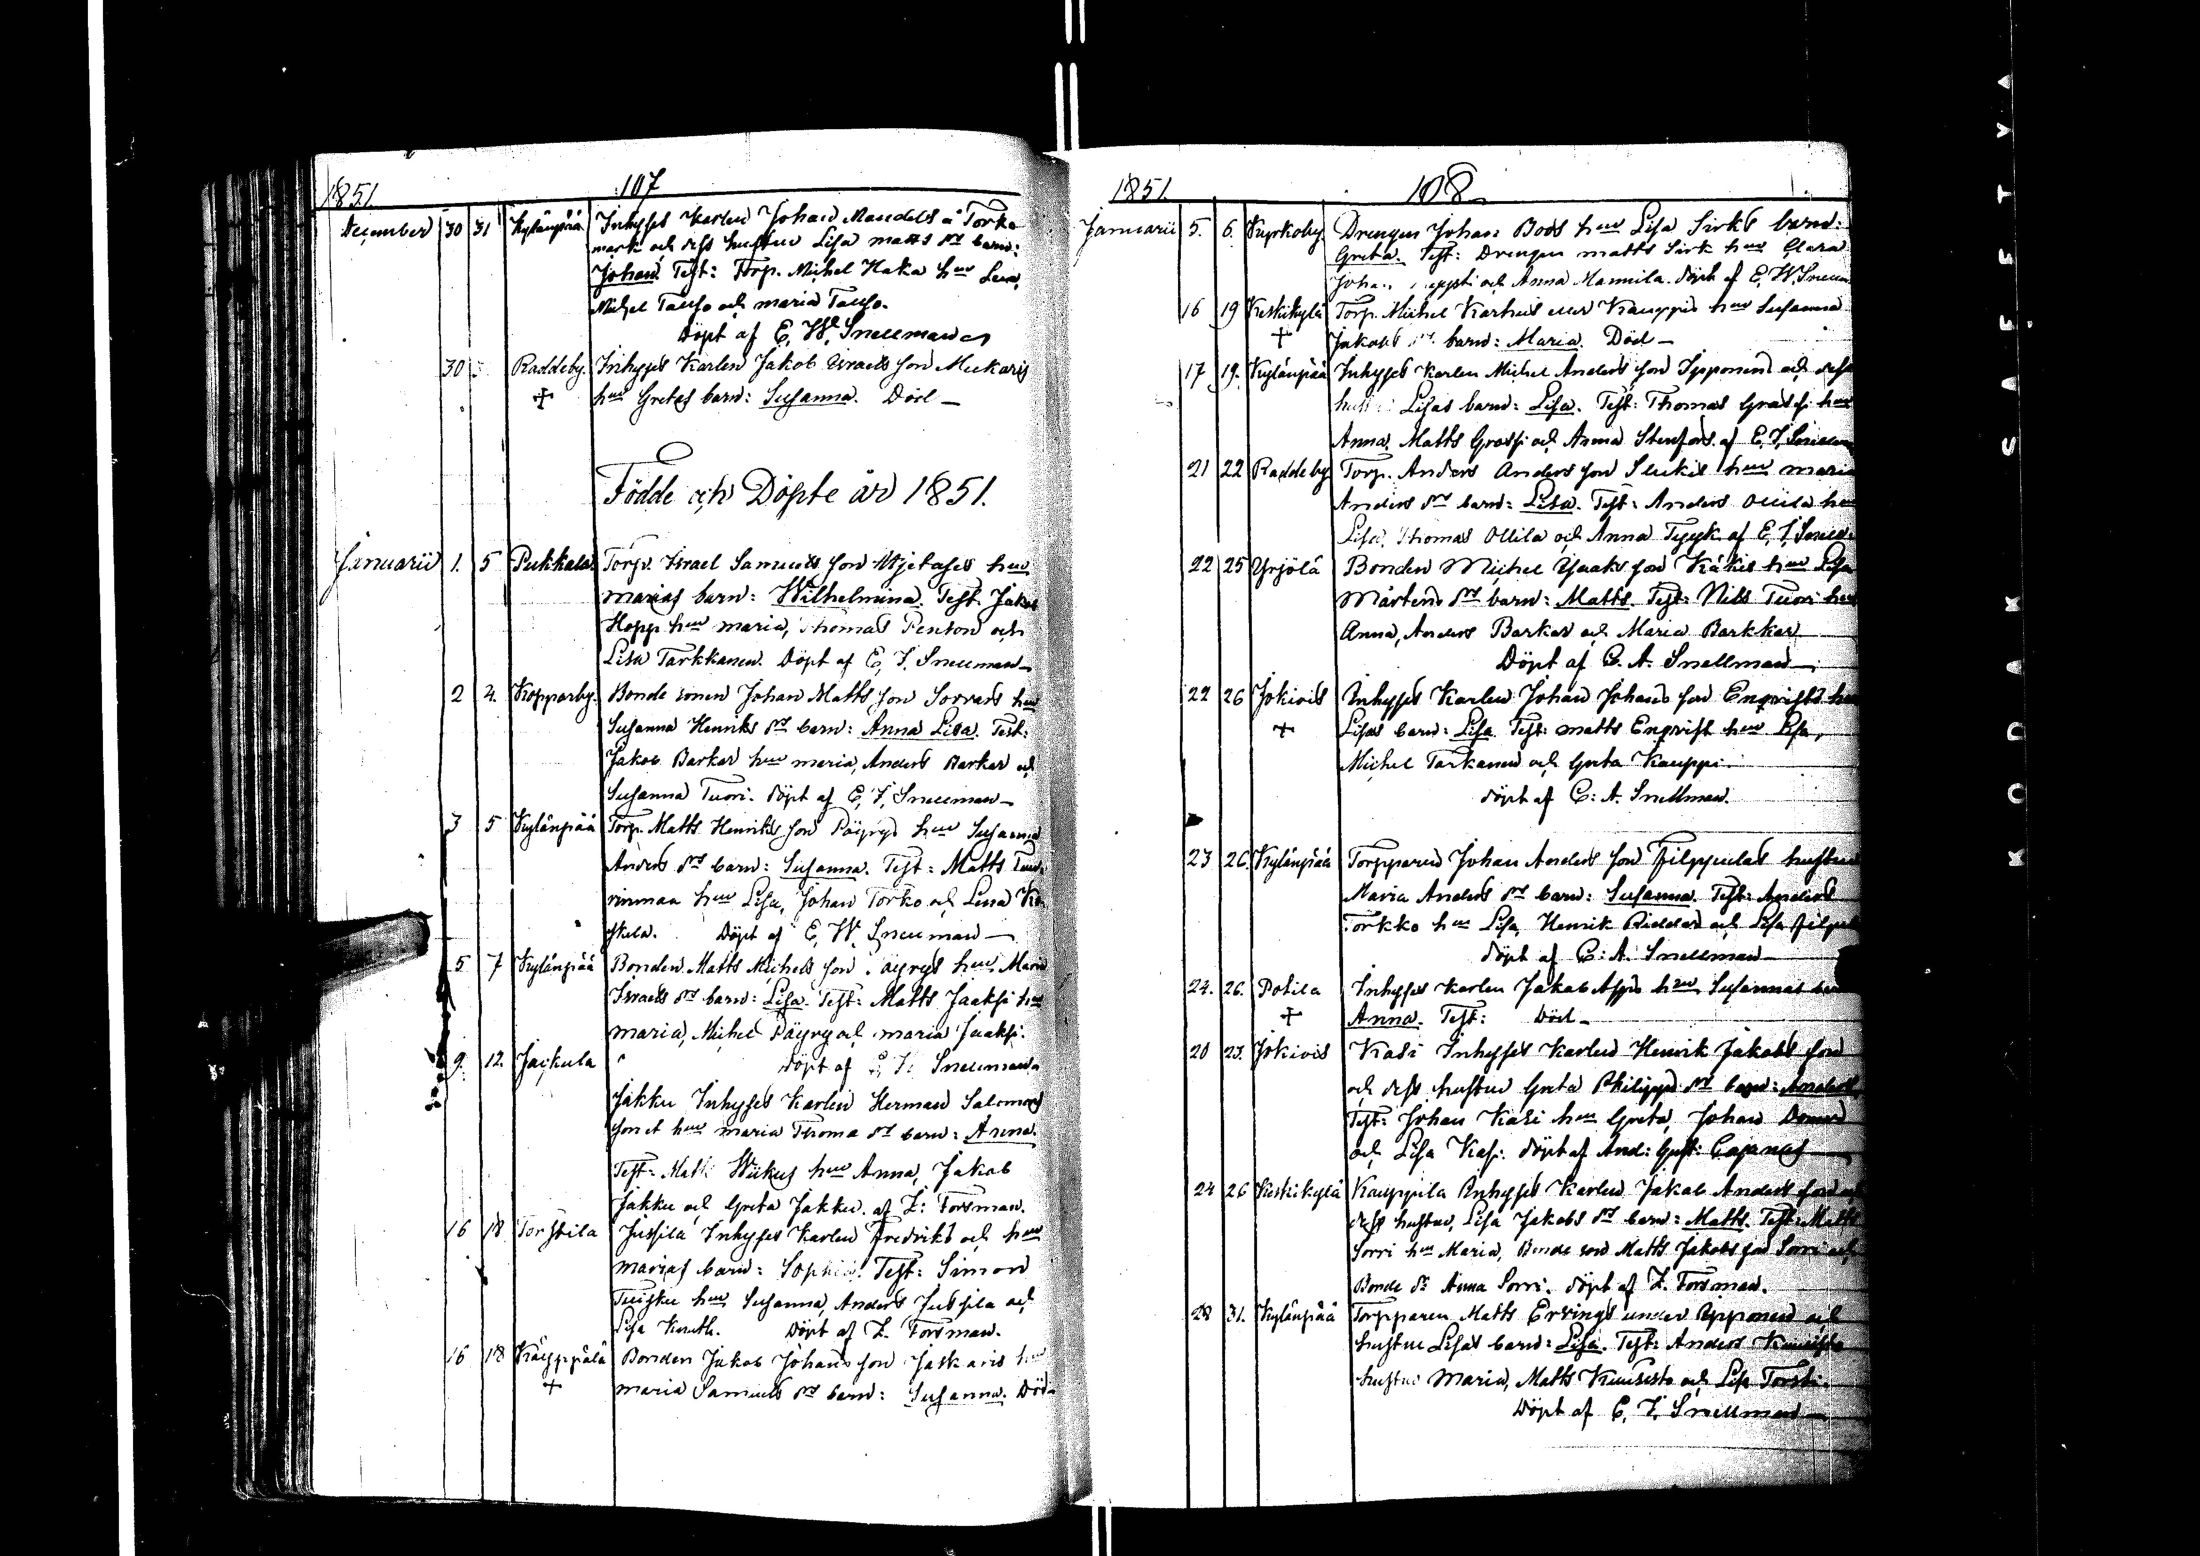 1851. 107
December 30 31 Kylänpää Inhyses Karlen Johan Mandels å Torko
mark och dess hustru Lisa Matts dr barn:
Johan. Test: Torp. Michel Haka hru Lena,
Michel Tauso och Maria Tauso.
Döpt af E, W, Snellman
30 Raddeby. Inhyses Karlen Jakob Israels son Mickaris
+ hru Gretas barn: Susanna. Död —
Födde och Döpte år 1851.
Januarii 1. 5 Pukkala Torp. Israel Samuels son hru
Marias barn: Wilhelmina. Test. Jakob
Hopp hru Maria, Thomas Penton och
Lisa Tarkkanen. Döpt af E, J, Snellman —
2 4. Kopparby. Bonde sonen Johan Matts son Sorvars hru
Susanna Henriks dr barn: Anna Lisa. Test:
Jakob Barkar hru Maria, Anders Barkar och
Susanna Tuori. Döpt af E, J, Snellman —
3 5 Kylänpää Torp. Matts Henriks son Päyrys hru Susanna
Anders dr barn: Susanna. Test: Matts
rinmaa hru Lisa, Johan Torko och Lena Ko
skela. Döpt af E, W, Snellman —
5 7 Kylänpää Bonden Matts Michels son Päyrys hru Maria
Israels dr barn: Lisa. Test: Matts Jaaksi hru
Maria, Michel Päyry och Maria Jaaksi.
9. 12. Jaskula Döpt af Snellman
Jakku Inhyses Karlen Herman Salomons
son et hru Maria Thoma dr barn: Anna.
Test: Matts Wiikus hru Anna, Jakob
Jakku och Greta Jakku. af Z: Forsman.
16 18 Torstila Jussila Inhyses Karlen Fredriks och hru
Marias barn: Sophia. Test: Simon
Tuisku hru Susanna, Anders Jussila och
Lisa Knuth. Döpt af Z. Forsman.
16 18 Käyppälä Bonden Jakob Johans son Jaskaris hru
+ Maria Samuels dr barn: Susanna. Död
1851. 108
Januarii 5. 6. Kyrkoby. Drengen Johan Boos hru Lisa Sirks barn:
Greta. Test: Drengen Matts Sirk hru Clara
Joha. och Anna Mannila. Döpt af E, W, Snellm
16 19 Keskikylä Torp. Michel Karhus eller Kauppis hru Susanna
+ Jakobs dr barn: Maria. Död —
17 19. Kylänpää Inhyses Karlen Michel Anders son Ipponens och dess
hustru Lisas barn: Lisa. Test: Thomas Grassi hru
Anna, Matts Grassi och Anna Stenfors. af E, J, Snellm
21 22 Raddeby Torp. Anders Anders son Leukis hru Maria
Anders dr barn: Lisa. Test: Anders Ollila hru
Lisa, Thomas Ollila och Anna af E, J, Snellm
22 25 Yrjölä Bonden Michel Jaaks son Käkis hru Lisa
Mårtens dr barn: Matts. Test: Nils Tuori hru
Anna, Anders Barkar och Maria Barkkar
Döpt af C. A. Snellman —
22 26 Jokivis Inhyses Karlen Johan Johans son Enqvists hru
+ Lisas barn: Lisa. Test: Matts Enqvist hru Lisa,
Michel Tarkanen och Greta Kauppi.
Döpt af C: A. Snellman.
23 26. Kylänpää Torpparen Johan Anders son Filppulas hustru
Maria Anders dr barn: Susanna. Test: Anders
Torkko hru Lisa, Henrik Riddar och Lisa Filpu
Döpt af C: A. Snellman —
24. 26. Potila Inhyses Karlen Jakob Assis hru Susannas barn
+ Anna. Test: Död —
20 23. Jokivis Kasi Inhyses Karlen Henrik Jakobs son
och dess hustru Greta Philipps dr barn: Anders
Test: Johan Kasi hru Greta, Johan
och Lisa Kasi. Döpt af And: Gust: Cajanus
24 26 Keskikylä Kauppila Inhyses Karlen Jakob Anders son och
dess hustru, Lisa Jakobs dr barn: Matts. Test: Matts
Sorri hru Maria, Bonde son Matts Jakobs son Sorri och
Bonde dr Anna Sorri. Döpt af Z. Forsman.
28 31. Kylänpää Torpparen Matts Ervings under Ipponen och
hustru Lisas barn: Lisa. Test: Anders Kuusisto
hustru Maria, Matts Kuusisto och Lisa Torsti.
Döpt af E, J, Snellman —
KODAK SAFETY A